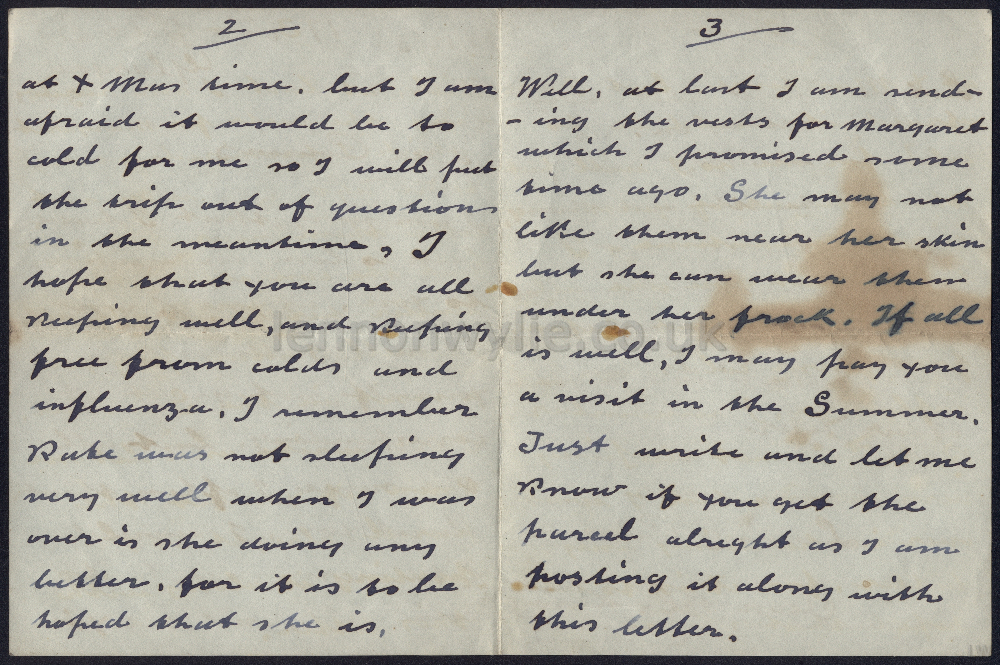 2
at X Mas time. but I am
afraid it would be to
cold for me so I will put
the trip out of questions
in the meantime, I
hope that you are all
Keeping well, and Keeping
free from colds and
influenza. I remember
Kate was not sleeping
very well when I was
over is she doing any
better. for it is to be
hoped that she is.
3
Well, at last I am send-
-ing the vests for Margaret
which I promised some
time ago. She may not
like them near her skin
but she can wear them
under her frock. If all
is well, I may pay you
a visit in the Summer.
Just write and let me
Know if you get the
parcel alreght as I am
posting it along with
this letter.
lennonwylie.co.uk